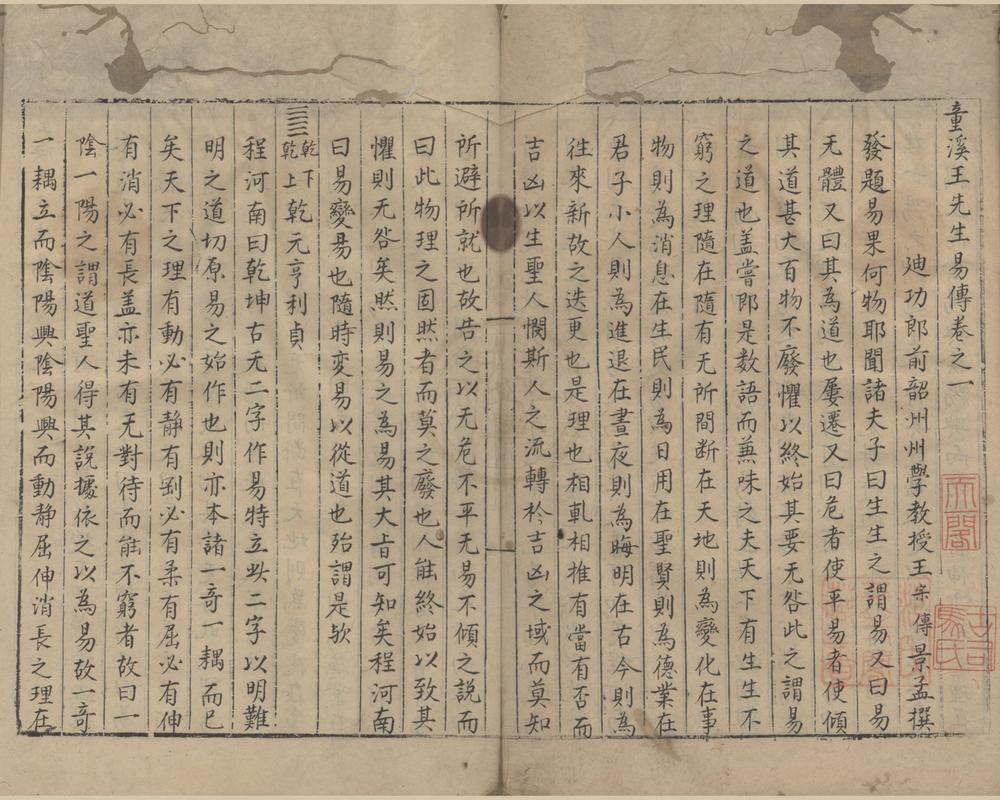 童溪王先生易傳卷之一
廸功郎前韶州州學教授王宗傳景孟撰
發題易果何物耶聞諸夫子曰生生之謂易又曰易
无體又曰其為道也屢遷又曰危者使平易者使傾
其道甚大百物不廢懼以終始其要无咎此之謂易
之道也盖嘗即是数語而兼味之夫天下有生生不
窮之理隨在隨有无所間断在天地則為變化在事
物則為消息在生民則為日用在聖賢則為德業在
君子小人則為進退在晝夜則為晦明在古今則為
徃來新故之迭更也是理也相軋相推有當有否而
吉凶以生聖人憫斯人之流轉扵吉凶之域而莫知
所避所就也故告之以无危不平无易不傾之説而
曰此物理之固然者而莫之廢也人能終始以致其
懼則无咎矣然則易之為易其大旨可知矣程河南
曰易變易也隨時变易以從道也殆謂是欤
乾下乾上乾元亨利貞
程河南曰乾坤古无二字作易特立此二字以明難
明之道切原易之始作也則亦本諸一奇一耦而已
矣天下之理有動必有静有剛必有柔有屈必有伸
有消必有長盖亦未有无對待而能不窮者故曰一
陰一陽之謂道聖人得其說據依之以為易故一奇
一耦立而陰陽興陰陽興而動静屈伸消長之理在